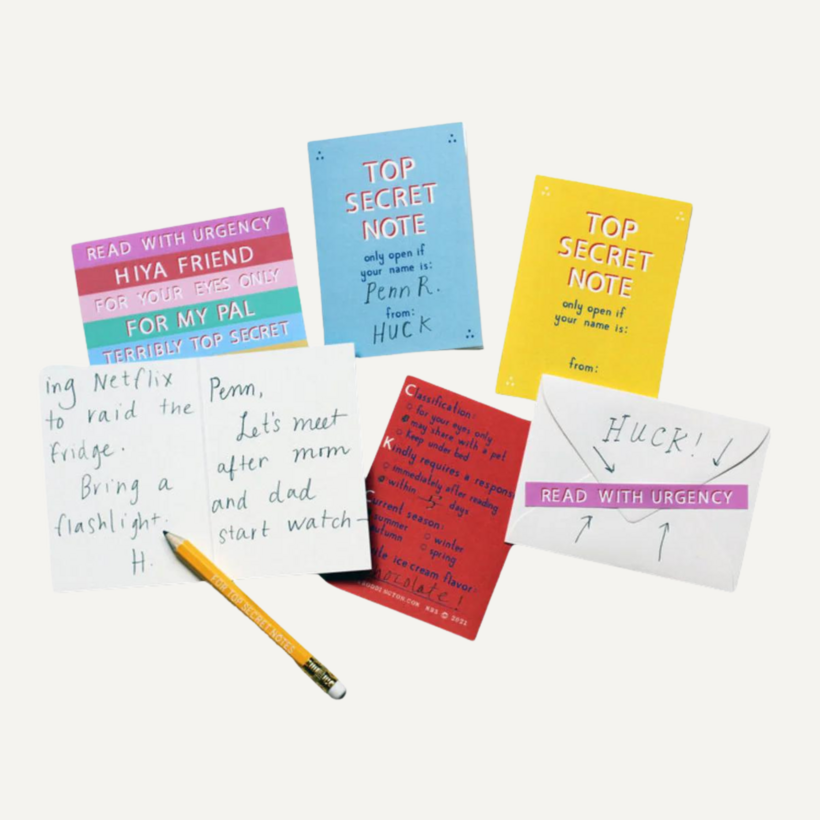 READ WITH URGENCY
HIYA FRIEND
FOR YOUR EYES ONLY
FOR MY PAL
TERRIBLY TOP SECRET
TOP
SECRET
NOTE
only open if
your name is:
Penn R.
from:
HUCK
TOP
SECRET
NOTE
only open if
your name is:
from:
ing Netflix
to raid the
fridge.
Bring a
flashlight.
H.
Penn,
Let's meet
after mom
and dad
start watch-
FOR TOP SECRET NOTES
Classification:
for your eyes only
may share with a pal
keep under bed
Kindly requires a respons
immediately after reading
within days
Current season:
summer
winter
autumn
spring
ice cream flavor:
chocolate!
© 2021
HUCK!
READ WITH URGENCY